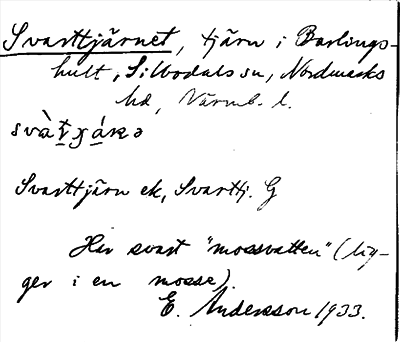 Svarttjärnet, tjärn i Barlings-
hult, Silbodals sn, Nordmarks
hd, Värml. l.

Svarttjärn ek, Svarttj. G
Har svart "mossvatten" (lig-
ger i en mosse).
E. Andersson 1933.